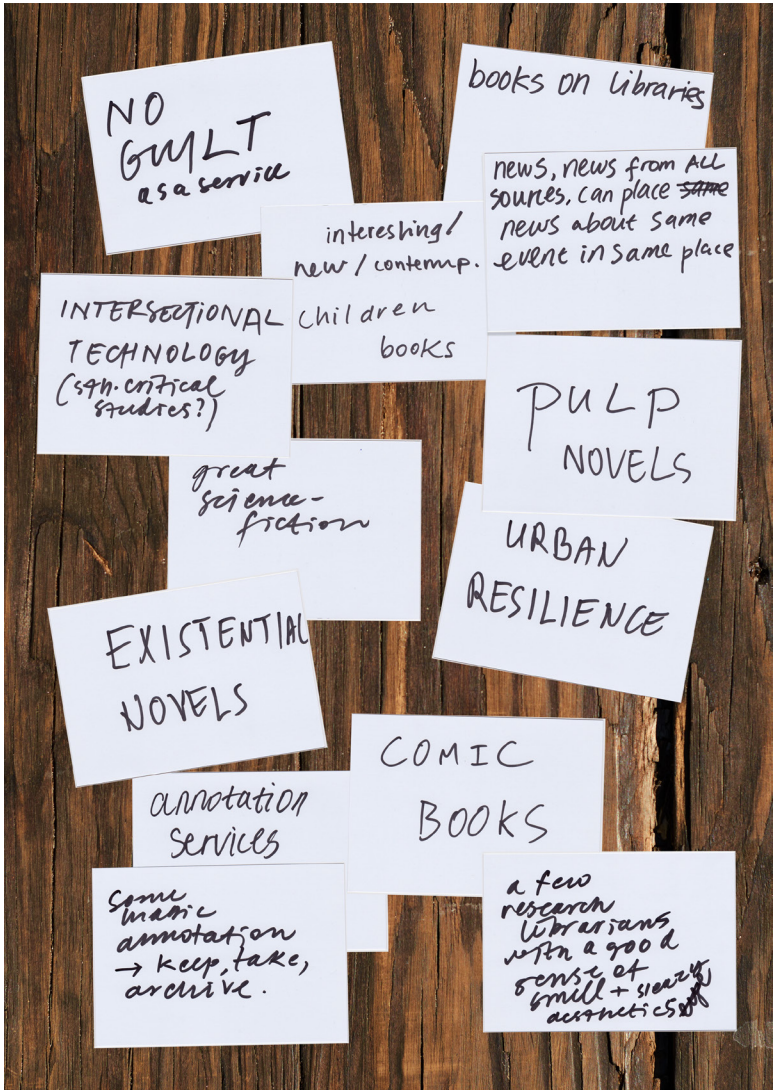 NO
GUILT
as a service
books on libraries
news, news from ALL
sources, can place same
news about same
event in same place
interesting/
new / contemp.
children
books
INTERSECTIONAL
TECHNOLOGY
(sth. critical
studies?)
PULP
NOVELS
great
science-
fiction
URBAN
RESILIENCE
EXISTENTIAL
NOVELS
COMIC
BOOKS
annotation
services
some
magic
annotation
→ keep, take,
archive.
a few
research
librarians
with a good
sense of
smell + sleazy
aesthetics